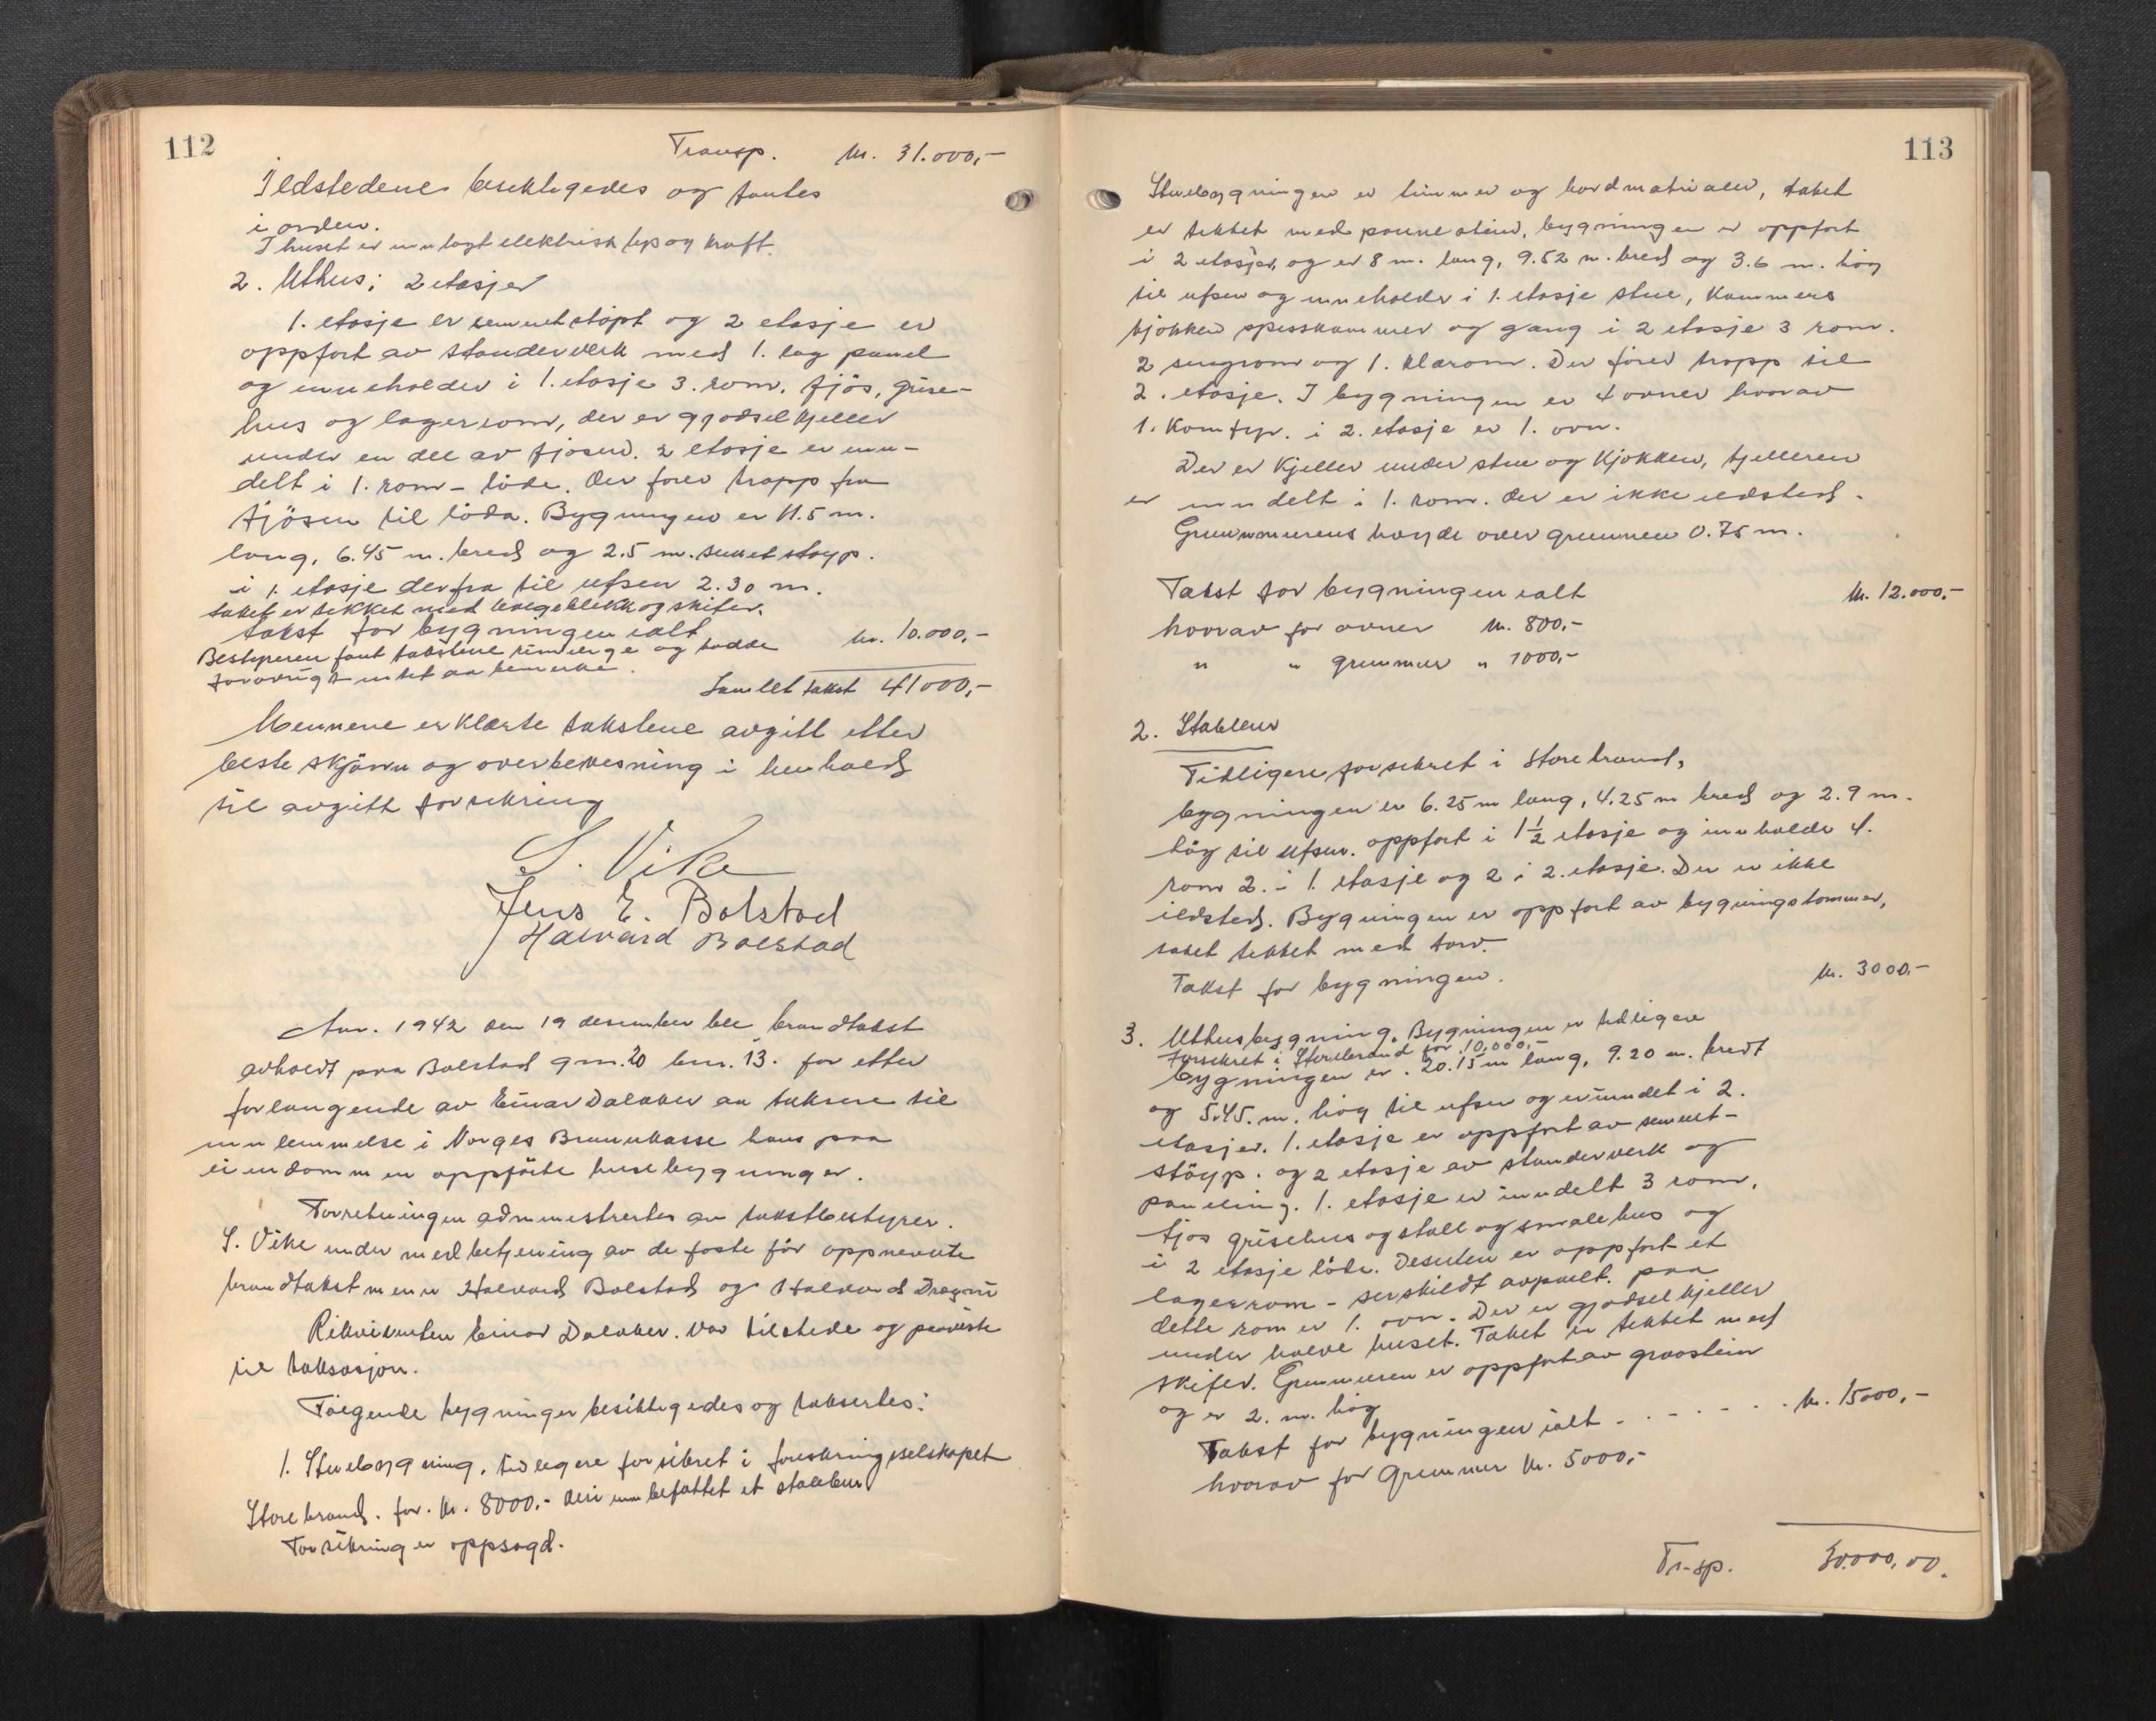 112
Transp. kr. 31.000,-
Ildstedene besiktigedes og fantes
i orden.
I huset er innlagt elektrisk lys og kraft.
2. Uthus; 2 etasjer
1. etasje er sementstøpt og 2 etasje er
oppført av standerverk med 1. lag panel
og inneholder i 1. etasje 3. rom. fjös, grise-
hus og lagerrom, der er gjødselkjeller
under en del av fjøsen. 2 etasje er inn-
delt i 1. rom - löde. Der fører trapp fra
fjösen til löda. Bygningen er 11.5 m.
lang, 6.45 m. bred og 2.5 m. sementstøyp.
i 1. etasje derfra til ufsen 2.30 m.
taket er tekket med bølgeblekk og skifer.
takst for bygningen ialt kr. 10.000,-
Bestyreren fant takstene rimelige og hadde
forøvrigt intet aa bemerke.
Samlet takst 41000,-
Mennene erklærte takstene avgitt etter
beste skjönn og overbevisning i henhold
til avgitt forsikring
S. Vike
Jens E. Bolstad
Halvard Bolstad
Aar. 1942 den 19 desember ble brandtakst
avholdt paa Bolstad gnr. 20 bnr. 13. for etter
forlangende av Einar Dalaker aa taksere til
innlemmelse i Norges Brannkasse hans paa
eiendommen oppförte husebygninger.
Forretningen administrertes av takstbestyrer.
S. Vike under medbetjening av de faste för oppnevnte
brandtakstmenn Halvard Bolstad og Halvard Drægni
Rikvirenten Einar Dalaker. var tilstede og paaviste
til taksasjon.
Følgende bygninger besiktigedes og taksertes:
1. Stuebygning. tidligere forsikret i forsikringsselskapet
Storebrand. for. kr. 8000.- deri innbefattet et stabbur
Forsikring er oppsagd.
113
Stuebygningen er timmer og bordmatrialer, taket
er tekket med pannestein, bygningen er oppført
i 2 etasjer, og er 8 m. lang, 9.52 m. bred og 3.6 m. høg
til ufsen og inneholder i 1. etasje stue, kammers
kjøkken spisskammer og gang i 2 etasje 3 rom.
2 sengrom og 1. klærom. Der fører trapp til
2. etasje. I bygningen er 4 ovner hvorav
1. Komfyr. i 2. etasje er 1. ovn.
Der er kjeller under stue og kjøkken, kjelleren
er inndelt i 1. rom. der er ikke ildsted.
Grunnmurens høyde over grunnen 0.75 m.
Takst for bygningen ialt kr. 12.000.-
hvorav for ovner kr. 800,-
" " grunmur " 1000,-
2. Stabbur
Tidligere forsikret i Storebrand,
bygningen er 6.25 m lang, 4.25 m bred og 2.9 m.
høg til ufsen. oppført i 1½ etasje og inneholder 4.
rom 2. i 1. etasje og 2 i 2. etasje. Der er ikke
ildsted. Bygningen er oppført av bygningstømmer,
taket tekket med torv.
Takst for bygningen. kr. 3000.-
3. Uthusbygning. Bygningen er tidligere
forsikret i Storebrand for 10,000,-
bygningen er. 20.15 m lang, 9.20 m. bredt
og 5.45. m. høg til ufsen og er inndet i 2.
etasjer. 1. etasje er oppført av sement-
støyp. og 2 etasje av standerverk og
paneling. 1. etasje er inndelt 3 rom.
fjos grisehus og stall og smalehus og
i 2 etasje löde. Desuten er oppført et
lagerrom - serskildt avpaelt. paa
dette rom er 1. ovn. Der er gjødselkjeller
under halve huset. Taket er tekket med
skifer. Grunmuren er oppført av graastein
og er 2. m. høg
Takst for bygningen ialt . - - - . . kr. 15000,-
hvorav for Grunmur kr. 5000,-
Tr-sp. 30.000,00.